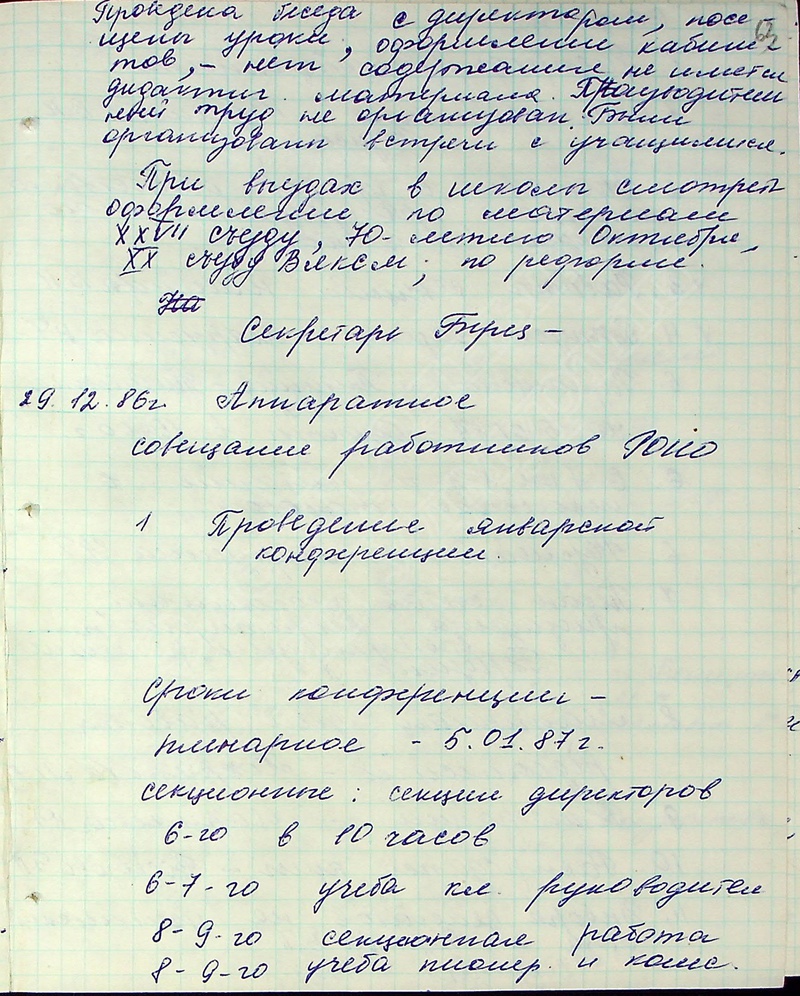 Проведена беседа с директором, посе
щены уроки, оформлении кабине-
тов, – нет содержание не имется
дидактич. материала. Производитель
ный труд не организован. Были
организованы встречи с учащимися.
При выездах в школы смотреть
оформление по материалам
XXVII съезду, 70-летию Октября,
XX съезду ВЛКСМ, по реформе.
На
Секретарь
29.12.86г. Аппаратное
совещание работников РОНО
1 Проведение январской
конференции.
Сроки конференции –
пленарное - 5.01.87г.
секционные: секции директоров
6-го в 10 часов
6-7-го учеба кл. руководител
8-9-го секционная работа
8-9-го учеба пионер. и комс.